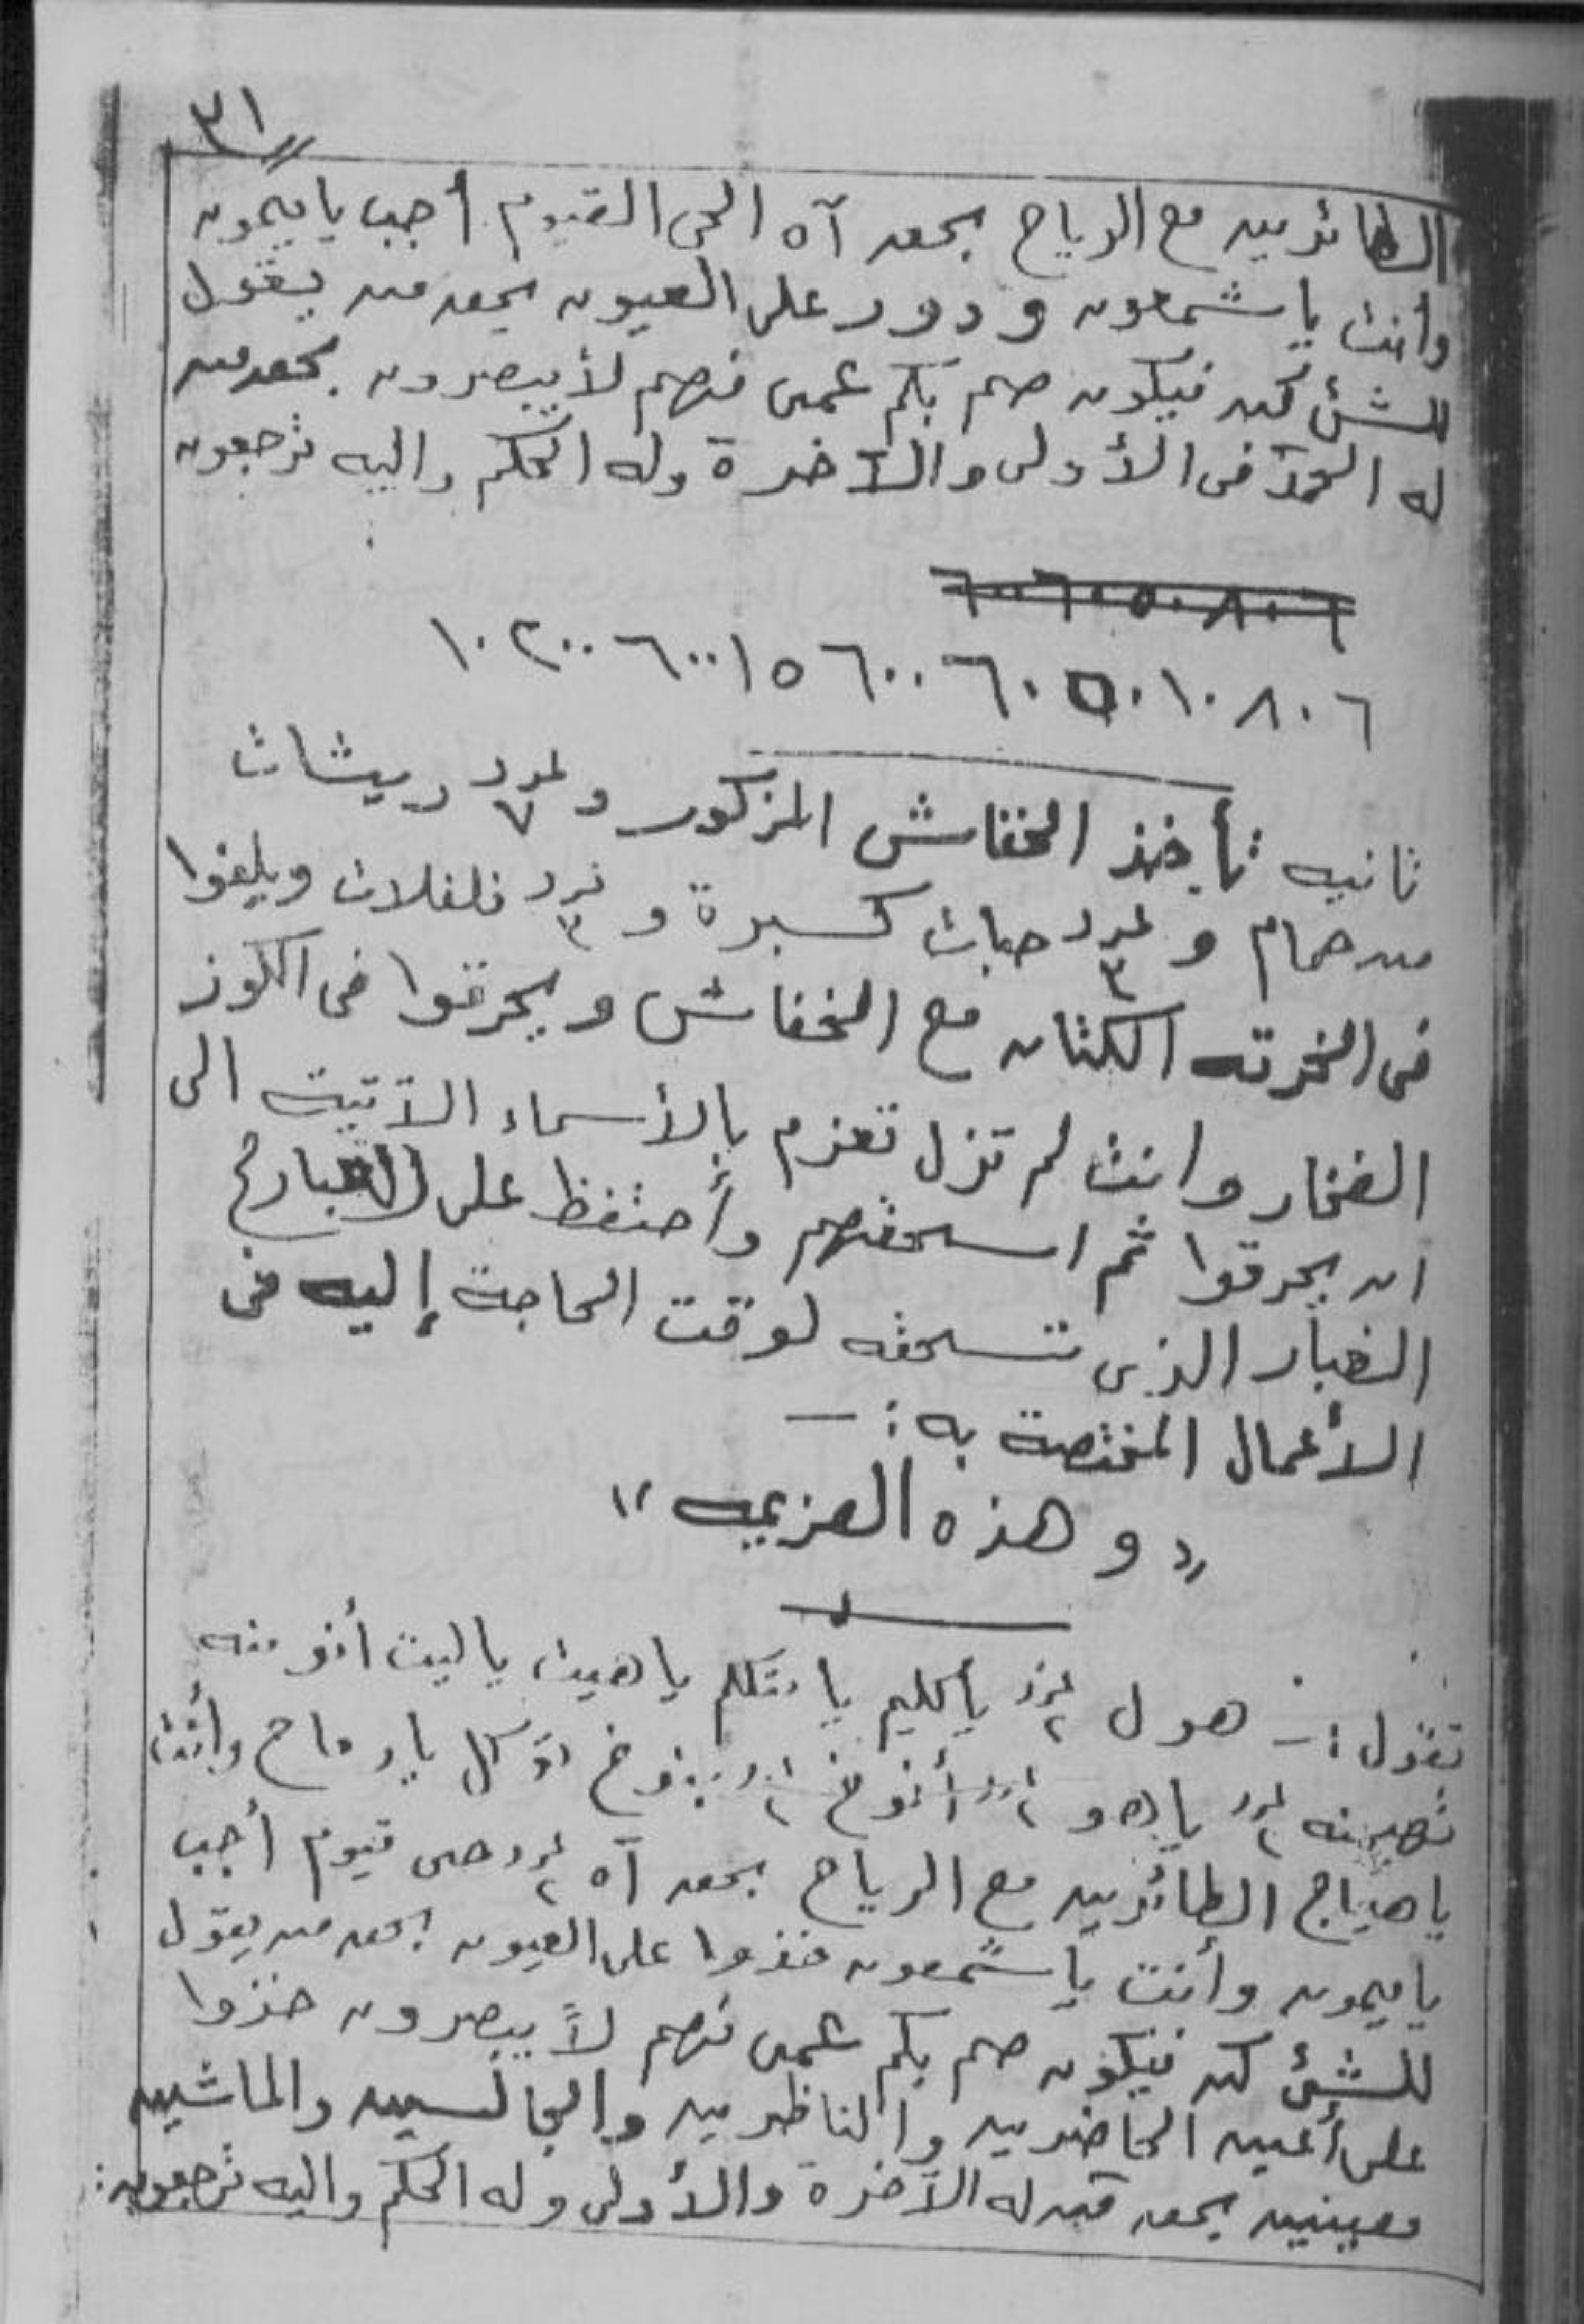 ٣١
الطائرين مع الرياح بحق آه الحى القيوم أجب يا ميمون
وأنت يا شمعون ودور على العيون بحق من يقول
للشئ كن فيكون صم بكم عمى فهم لا يبصرون بحق من
له الحمد فى الأولى والآخرة وله الحكم واليه ترجعون
٦٠٨٠١٠٥٠٦٠٦٠٠١٥٦٠٠٢٠٠١٠
ثانيه تأخذ الخفاش المزكور و عدد ٧ ريشات
من حمام و عدد ٣ حبات كسبرة و عدد ٣ فلفلات ويلفوا
فى الخرقه الكتان مع الخفاش ويحرقوا فى الكوز
الفخار وانت لم تزل تعزم بالأسماء الآتيت الى
ان يحرقوا ثم اسحقهم وأحتفظ على
الغبار الذى تسحقه لوقت الحاجة إليه فى
الأعمال المختصة به :ـ
"وهذه العزيمه"
تقول :ـ هول عدد ٢ ياكليم يا متكلم يا هيت يا ليت
عدد ٢ ياهو عدد ٢ أنوخ عدد ٢ بنوخ توكل يا رماح وأنت
يا هياج الطائرين مع الرياح بحق آه عدد ٢ حى قيوم أجب
يا ميمون وأنت يا شمعون خذوا على العيون بحق من يقول
للشئ كن فيكون صم بكم عمى فهم لا يبصرون خذوا
على أعين الحاضرين والناظرين والجالسين والماشين
معينين بحق من له الآخرة والأولى وله الحكم واليه ترجعون: